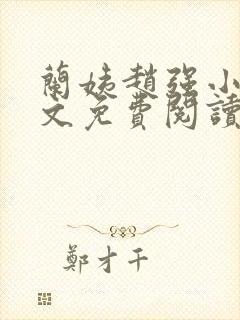 蘭姨趙强小
文免費閱讀
鄭才千